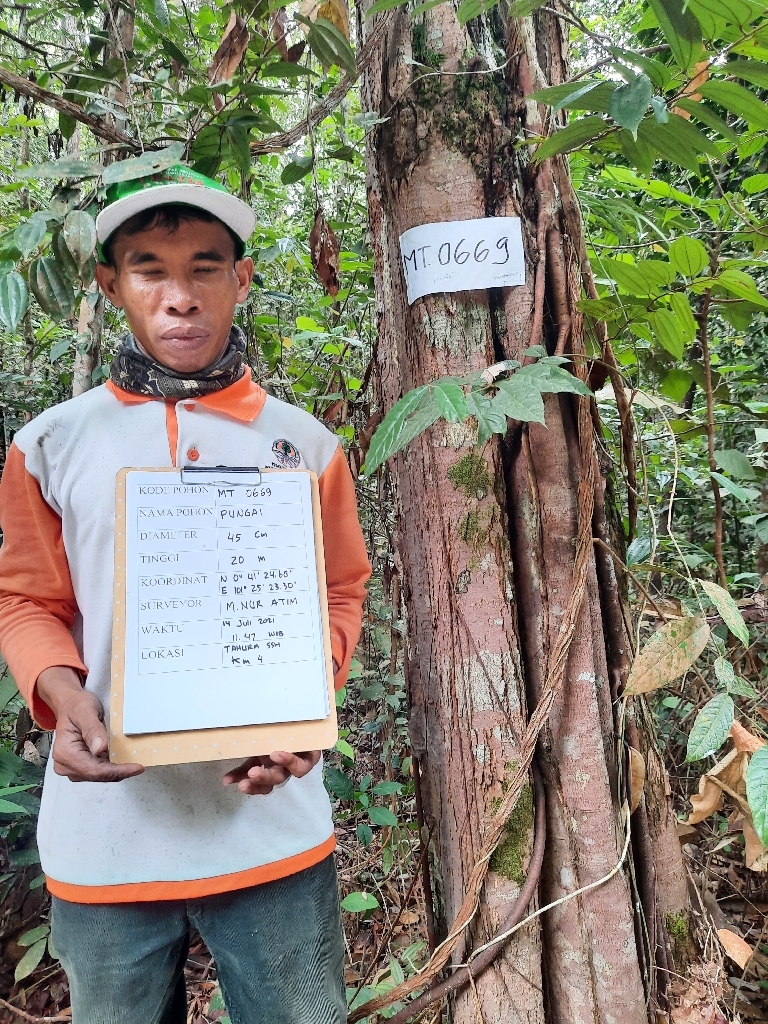 MT. 0669
KODE POHON MT 0669
NAMA POHON PUNGAI
DIAMETER 45 cm
TINGGI 20 m
KOORDINAT N 0° 41' 24.60"
E 101° 25' 23.30"
SURVEYOR M. NUR ATIM
WAKTU 14 JULI 2021
11.47 WIB
LOKASI TAHURA SSH
Km 4